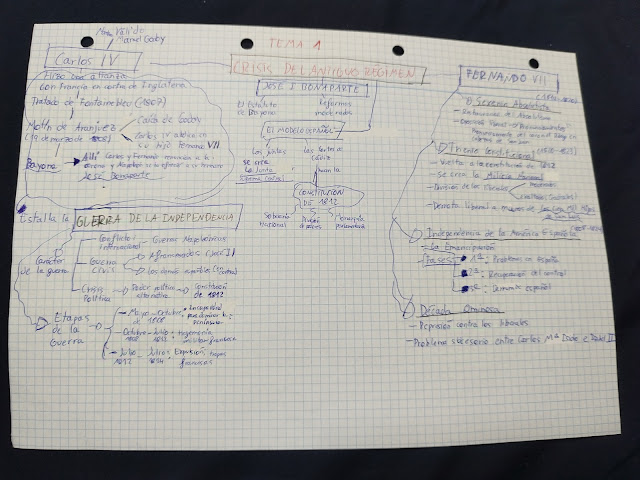 Manuel Godoy
Carlos IV
TEMA 1
CRISIS DEL ANTIGUO RÉGIMEN
Firmó una alianza
con Francia en contra de Inglaterra
Tratado de Fontainebleau (1807)
Motín de Aranjuez
(19 de marzo de 1808)
Caída de Godoy
Carlos IV abdica en
su hijo Fernando VII
Bayona
Allí Carlos y Fernando renuncian a la
José Bonaparte
JOSE I BONAPARTE
El Estatuto
de Bayona
Reformas
moderadas
EL MODELO ESPAÑOL
Las juntas
se crea
la Junta
Suprema Central
Las Cortes de
Cádiz
CONSTITUCIÓN
DE 1812
Soberanía
Nacional
División
de poderes
Monarquía
parlamentaria
Estalla la GUERRA DE LA INDEPENDENCIA
Carácter
de la guerra
Conflicto
internacional
Guerras Napoleónicas
Guerra
Civil
Afrancesados (José I)
Los demás españoles (en contra)
Crisis
Política
Poder político
alternativo
Constitución
de 1812
Etapas
de la
Guerra
Mayo - Octubre
1808
Incapacidad
para dominar la
península
Octubre - Julio
1808 1812
Hegemonía
militar francesa
Julio - Julio
1812 1814
Expulsión tropas
francesas
FERNANDO VII
Sexenio Absolutista
Restauración del Absolutismo
Trienio Liberal
(1820-1823)
Vuelta a la constitución de 1812
Se crea la Milicia Nacional
División de los liberales
moderados
Independencia de la América Española
La Emancipación
Fases
1ª: Problemas en españa
2ª: Recuperación del control
3ª: Derrota español
Década Ominosa
Represión contra los liberales
Problema sucesorio entre Carlos Mª Isidro e Isabel II